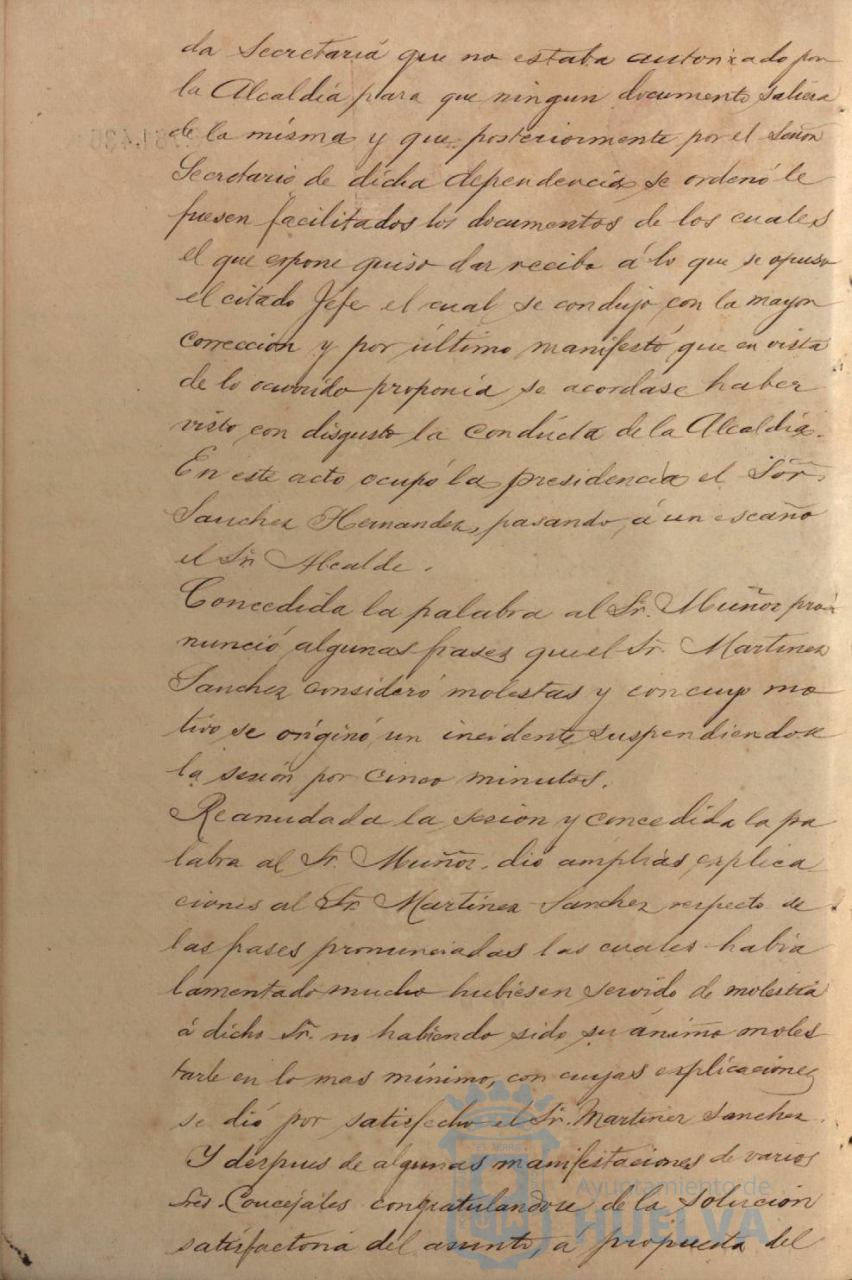 da Secretaría que no estaba autorizado por
la Alcaldía para que ningun documento saliera
de la misma y que posteriormente por el Señor
Secretario de dicha dependencia se ordenó le
fuesen facilitados los documentos de los cuales
el que espone quiso dar recibo á lo que se opuso
el citado Jefe el cual se condujo con la mayor
corrección y por último manifestó que en vista
de lo ocurrido proponía se acordase haber
visto con disgusto la conducta de la Alcaldía.
En este acto ocupó la presidencia el Sor.
Sanchez Hernandez, pasando á un escaño
el Sr. Alcalde.
Concedida la palabra al Sr. Muñoz pro-
nunció algunas frases que el Sr. Martinez
Sanchez consideró molestas y con cuyo mo
tivo se originó un incidente suspendiendose
la sesión por cinco minutos.
Reanudada la sesion y concedida la pa
labra al Sr. Muñoz, dió amplias esplica
ciones al Sr. Martinez Sanchez respecto de
las frases pronunciadas las cuales habia
lamentado mucho hubiesen servido de molestia
á dicho Sr. no habiendo sido su ánimo moles
tarle en lo mas mínimo, con cuyas esplicaciones
se dió por satisfecho el Sr. Martinez Sanchez.
Y despues de algunas manifestaciones de varios
Sres. Concejales congratulandose de la solución
satisfactoria del asunto á propuesta del
Ayuntamiento de
HUELVA